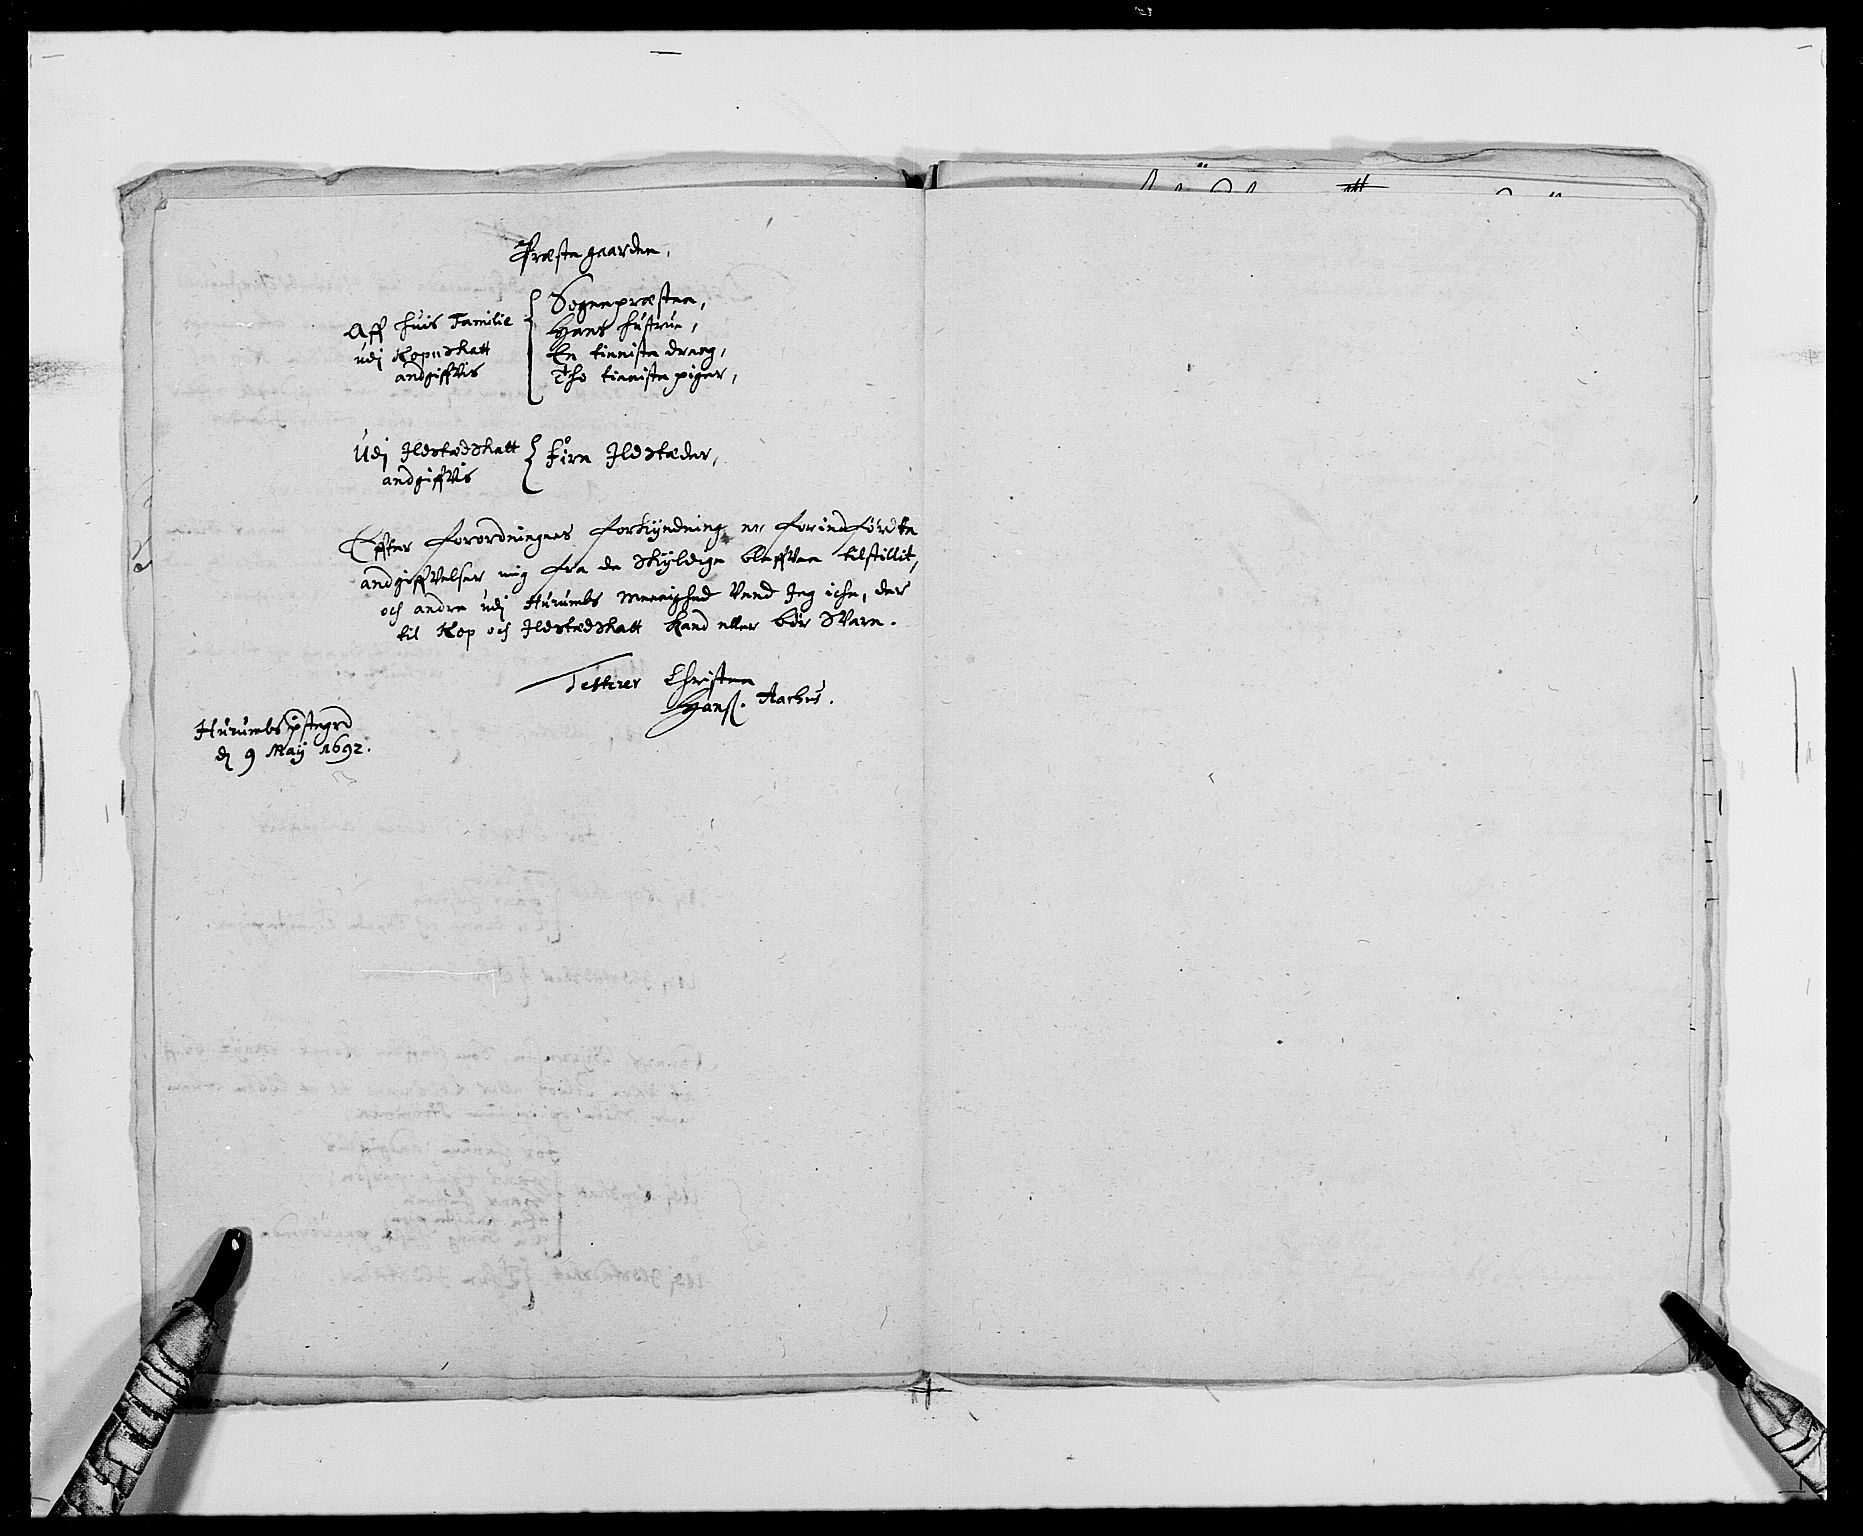 Præstegaarden,
Aff huis Familie
udj Kopskatt
andgiffvis
Sogenpræsten,
Hans hustrue,
En tieniste dreng,
Tho tieniste piger,
Udj Ildstædskatt
andgiffvis
Fire Ildstæder,
Effter forordningens forkyndning er forindførdte
andgiffvelser mig fra de skyldige bleffven tilstillit,
och andre udj Hurumbs meenighed veed Jeg iche, der
til Kop och Ildstædskatt kand eller bør svare.
Testerer Christen
Hanß. Aarhus.
Hurumbs pstegrd
d 9 Maij 1692.